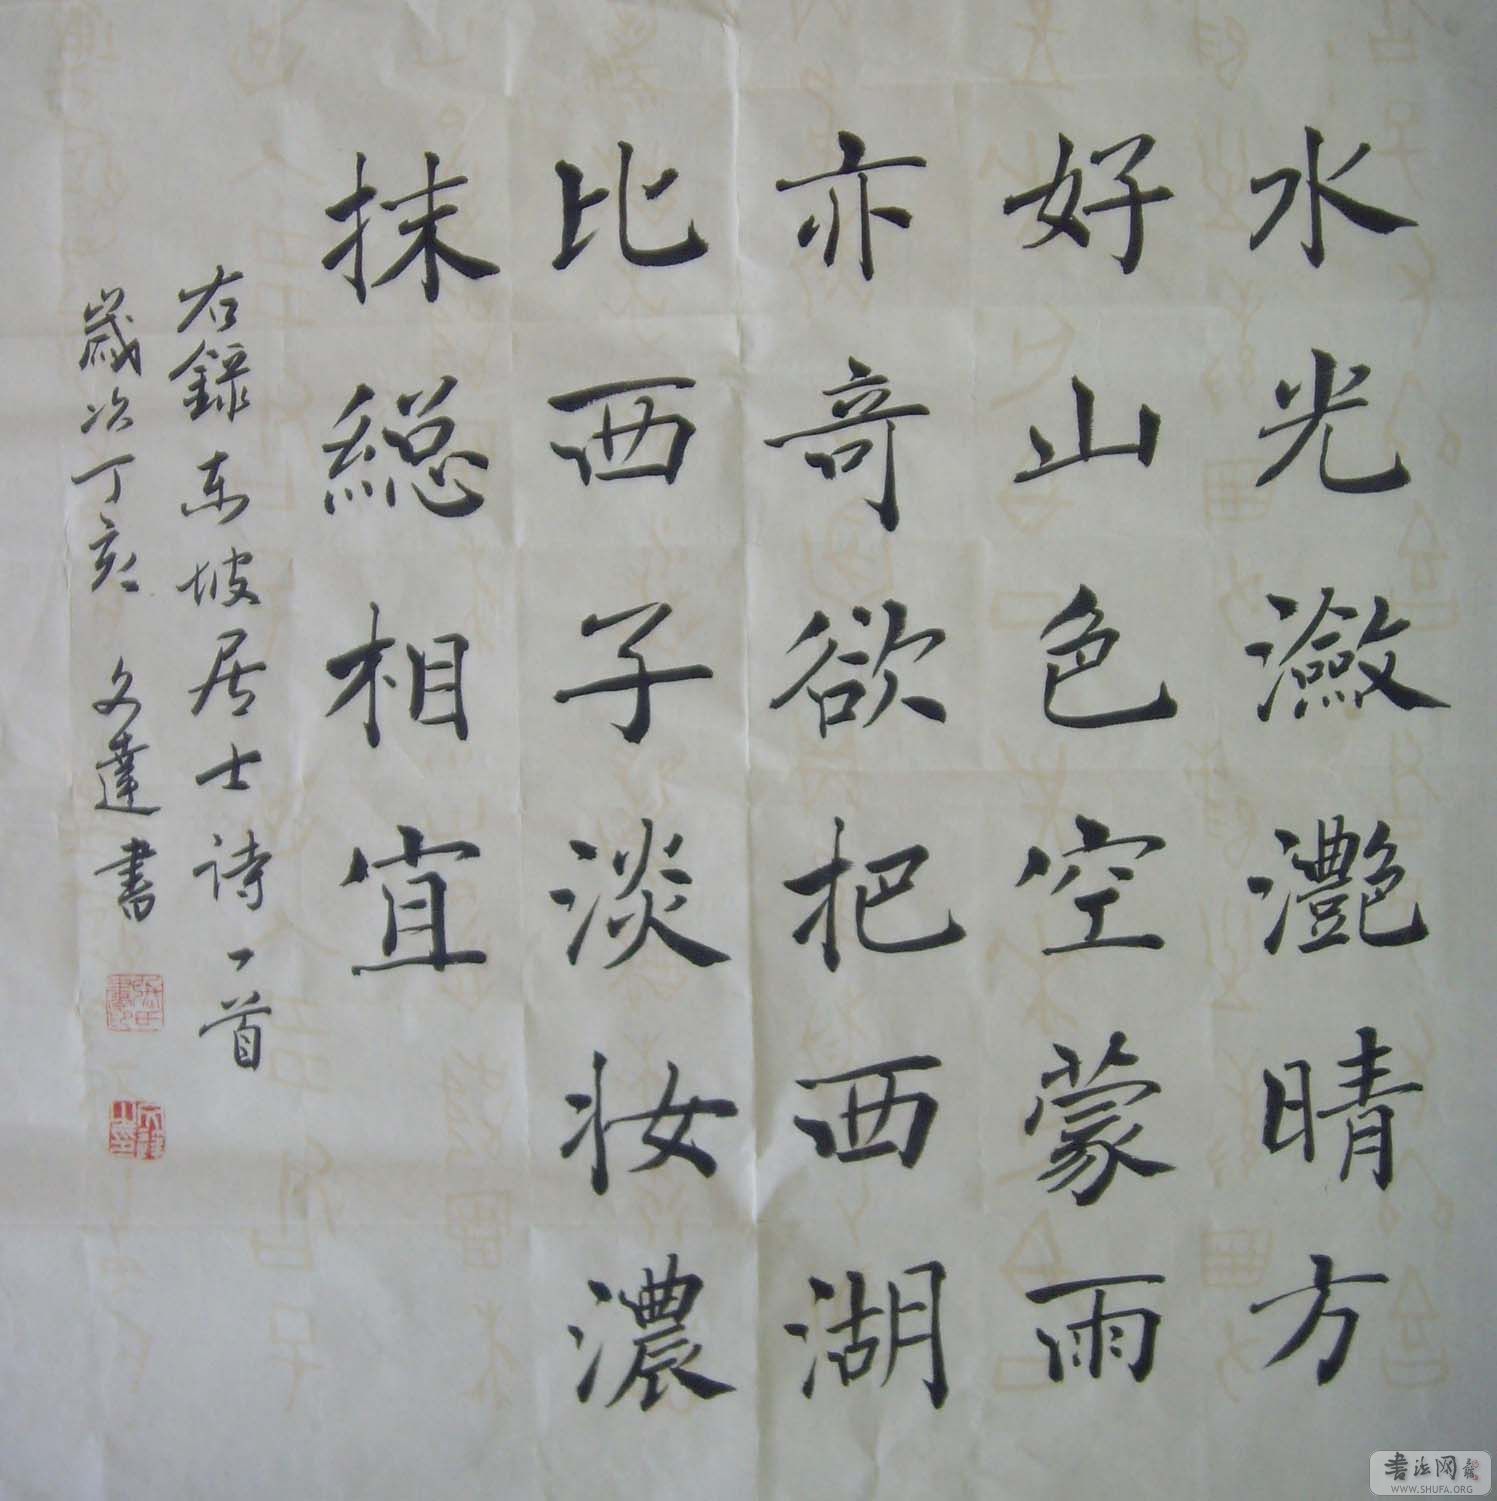 水光瀲灔晴方
好山色空蒙雨
亦奇欲把西湖
比西子淡妝濃
抹總相宜
右錄东坡居士诗一首
歲次丁亥 文達書
书法网
WWW.SHUFA.ORG